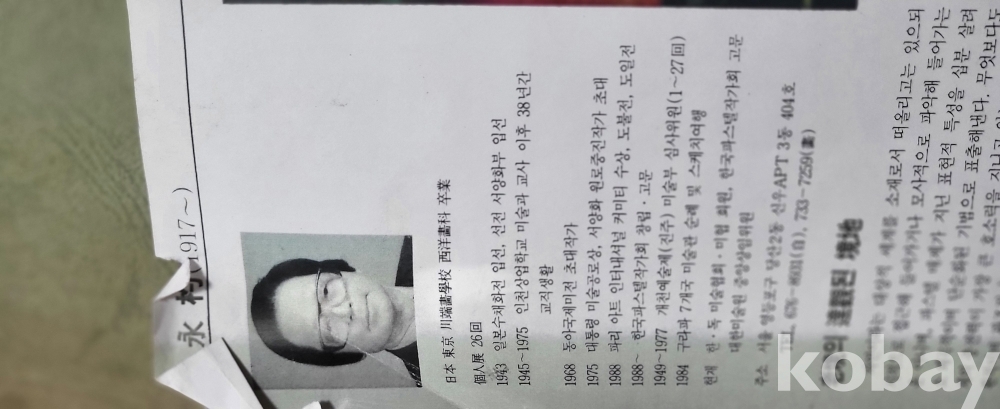 永
1917~)
日本 東京 川端畵學校 西洋畵科 卒業
個人展 26回
1943 일본수채화전 입선, 선전 서양화부 입선
1945~1975 인천상업학교 미술과 교사 이후 38년간
교직생활
1968 동아국제미전 초대작가
1975 대통령 미술공로상, 서양화 원로중진작가 초대
1988 파리 아트 인터내셔널 커미티 수상, 도불전, 도일전
1988~ 한국파스텔작가회 창립·고문
1949~1977 개천예술제(진주) 미술부 심사위원(1~27回)
1984 구라파 7개국 미술관 순례 및 스케치여행
현재 한·독 미술협회·미협 회원, 한국파스텔작가회 고문
대한미술원 중앙상임위원
주소 서울 영등포구 당산2동 신우APT 3동 404호
733-7259(畵)
소재로서 떠올리고는 있으되
모사적으로 파악해 들어가는
지닌 표현적 특성을 십분 살려
기법으로 표출해낸다. 무엇보다도
kobay